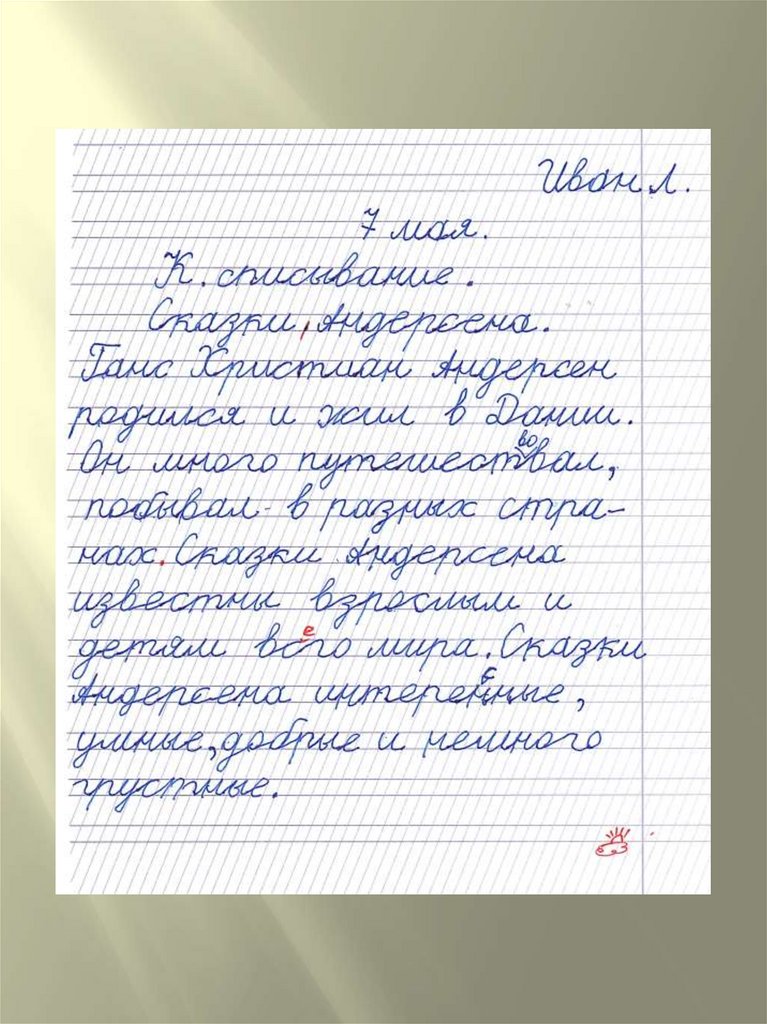 Иван Л.
7 мая.
К. списывание.
Сказки Андерсена.
Ганс Христиан Андерсен
родился и жил в Дании.
Он много путешествовал,
побывал в разных стра-
нах. Сказки Андерсена
известны взрослым и
детям всего мира. Сказки
Андерсена интересные,
умные, добрые и немного
грустные.